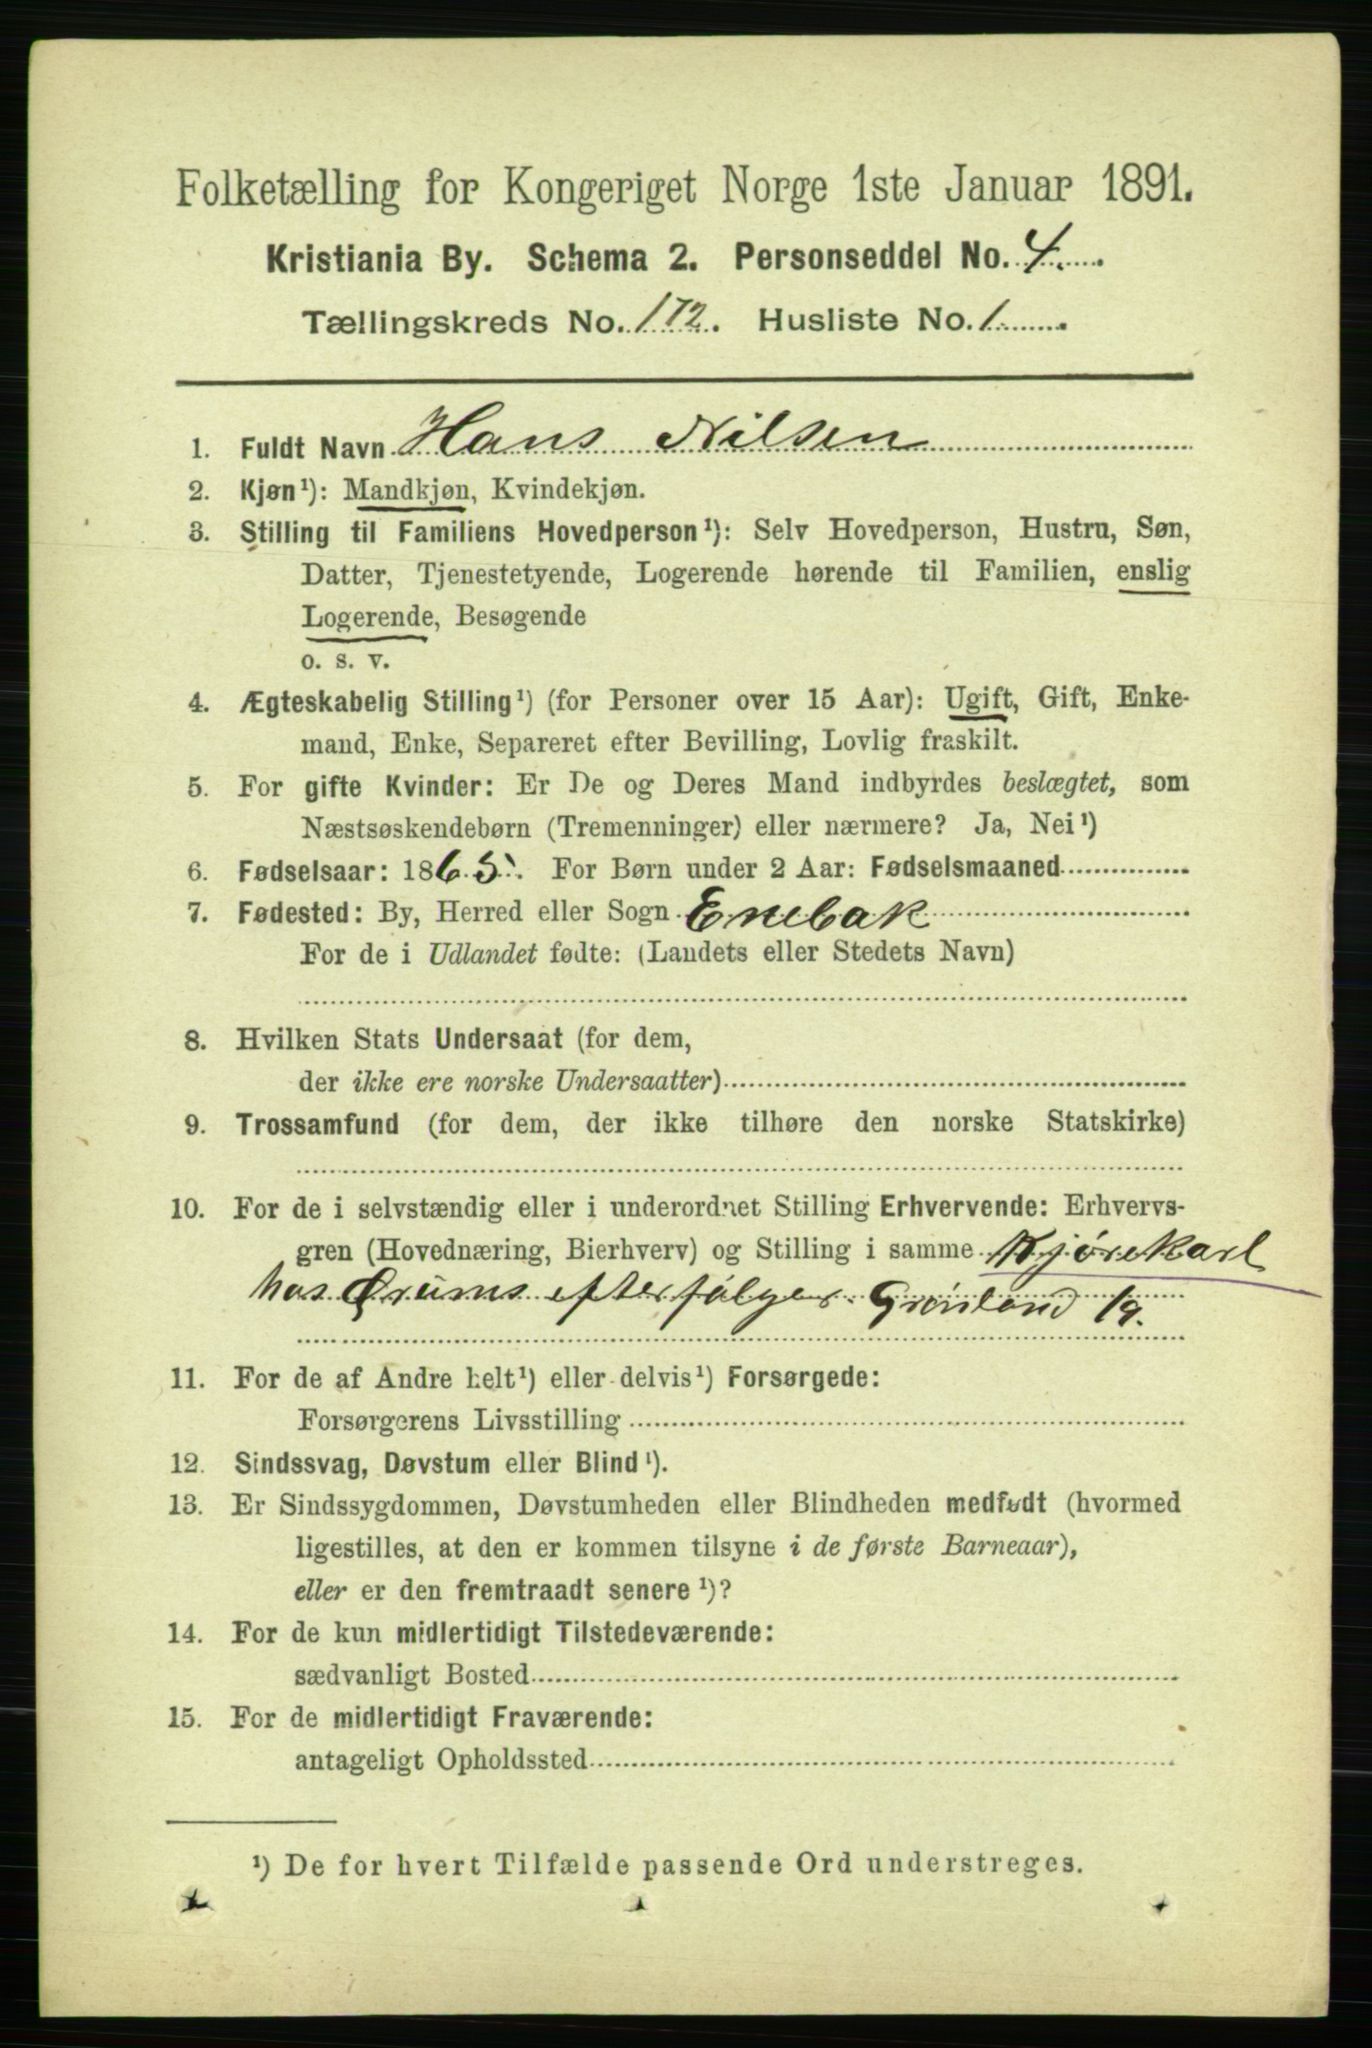 Folketælling for Kongeriget Norge 1ste Januar 1891.
Kristiania By. Schema 2. Personseddel No. 4.
Tællingskreds No. 172. Husliste No. 1.
1. Fuldt Navn Hans Nilsen
2. Kjøn¹): Mandkjøn, Kvindekjøn.
3. Stilling til Familiens Hovedperson¹): Selv Hovedperson, Hustru, Søn,
Datter, Tjenestetyende, Logerende hørende til Familien, enslig
Logerende, Besøgende
o. s. v.
4. Ægteskabelig Stilling¹) (for Personer over 15 Aar): Ugift, Gift, Enke-
mand, Enke, Separeret efter Bevilling, Lovlig fraskilt.
5. For gifte Kvinder: Er De og Deres Mand indbyrdes beslægtet, som
Næstsøskendebørn (Tremenninger) eller nærmere? Ja, Nei¹)
6. Fødselsaar: 1865. For Børn under 2 Aar: Fødselsmaaned
7. Fødested: By, Herred eller Sogn Enebak
For de i Udlandet fødte: (Landets eller Stedets Navn)
8. Hvilken Stats Undersaat (for dem,
der ikke ere norske Undersaatter)
9. Trossamfund (for dem, der ikke tilhøre den norske Statskirke)
10. For de i selvstændig eller i underordnet Stilling Erhvervende: Erhvervs-
gren (Hovednæring, Bierhverv) og Stilling i samme Kjørekarl
hos Ørums efterfølger Grønland 19.
11. For de af Andre helt¹) eller delvis¹) Forsørgede:
Forsørgerens Livsstilling
12. Sindssvag, Døvstum eller Blind¹).
13. Er Sindssygdommen, Døvstumheden eller Blindheden medfødt (hvormed
ligestilles, at den er kommen tilsyne i de første Barneaar),
eller er den fremtraadt senere¹)?
14. For de kun midlertidigt Tilstedeværende:
sædvanligt Bosted
15. For de midlertidigt Fraværende:
antageligt Opholdssted
¹) De for hvert Tilfælde passende Ord understreges.